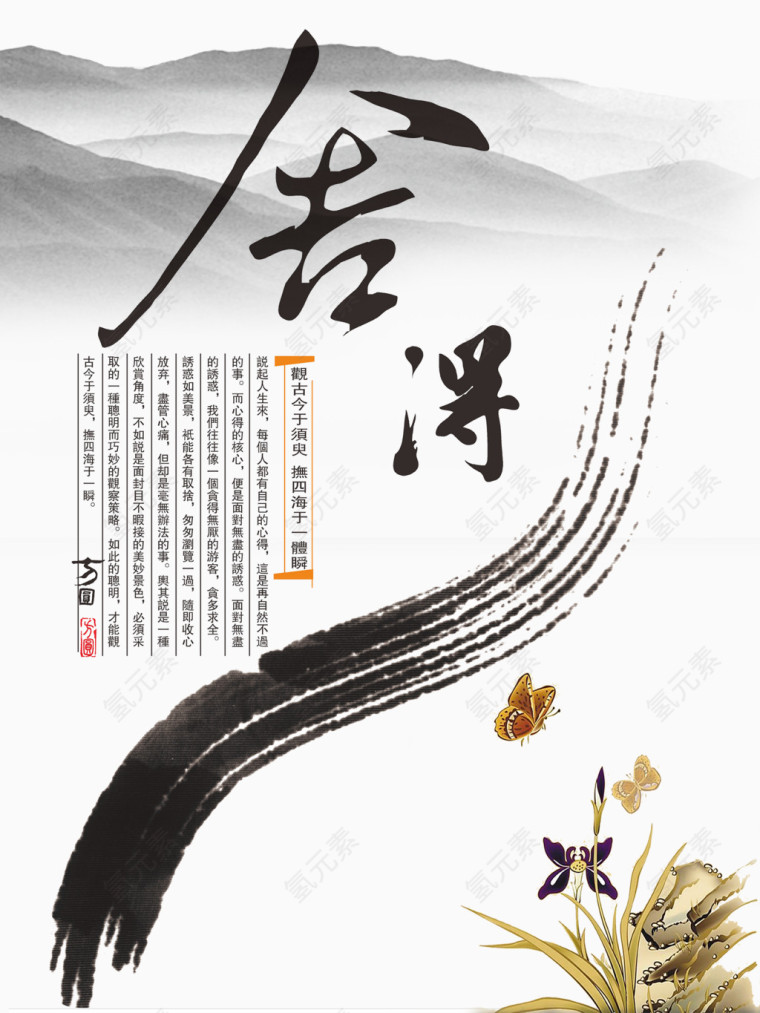 舍
得
觀古今于須臾 撫四海于一體瞬
説起人生來，每個人都有自己的心得，這是再自然不過
的事。而心得的核心，便是面對無盡的誘惑。面對無盡
的誘惑，我們往往像一個貪得無厭的游客，貪多求全。
誘惑如美景，衹能各有取捨，匆匆瀏覽一過，隨即收心
放弃，盡管心痛，但却是毫無辦法的事。輿其説是一種
欣賞角度，不如説是面封目不暇接的美妙景色，必須采
取的一種聰明而巧妙的觀察策略。如此的聰明，才能觀
古今于須臾，撫四海于一瞬。
方圓
方圓
氢元素